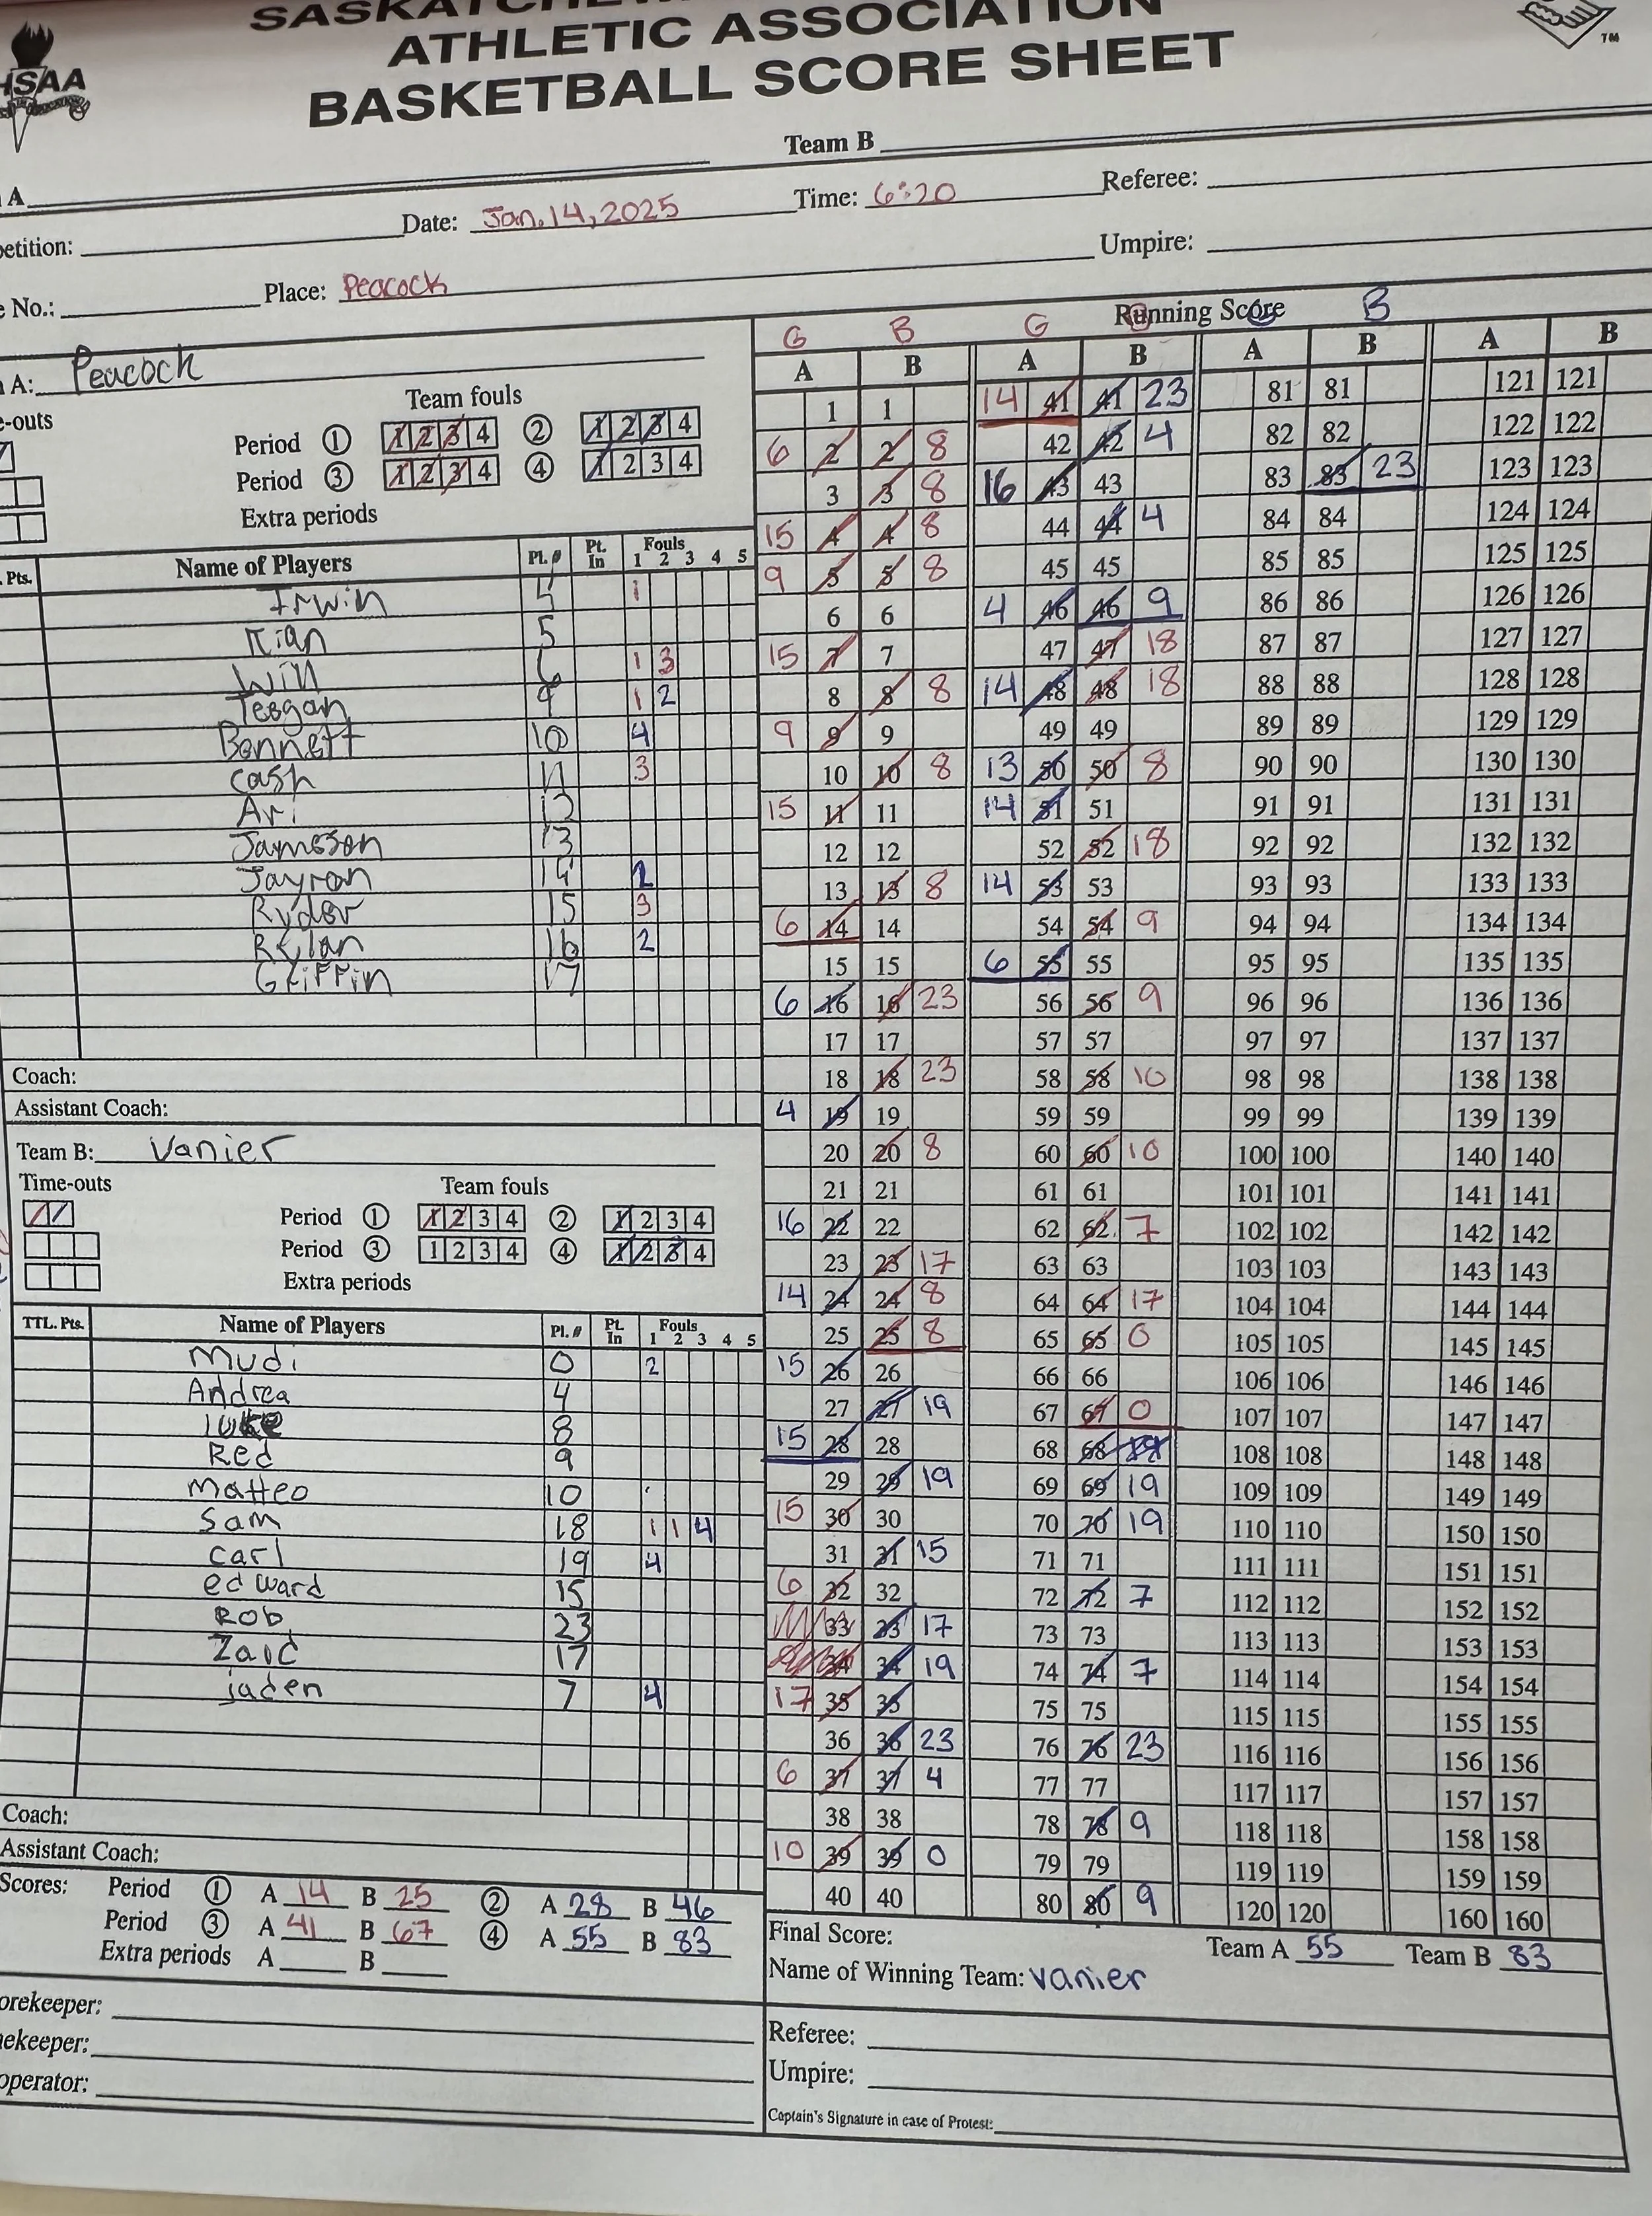 ATHLETIC ASSOCIATION
BASKETBALL SCORE SHEET
TM
Team B
A
Date: Jan. 14, 2025 Time: 6:20 Referee:
Place: Peacock Umpire:
No.:
A: Peacock
Team fouls
Period 1 1 2 3 4 2 1 2 3 4
Period 3 1 2 3 4 4 1 2 3 4
Extra periods
Pts. Name of Players Pl. # Pt. In Fouls 1 2 3 4 5
Irwin 1
Kian 5
Will 6 1 3
Teegan 9 1 2
Bennett 10 4
Cash 11 3
Ari 12
Jameson 13
Jayron 14
Ryder 15 3
Rylan 16 2
Griffin 17
Coach:
Assistant Coach:
Team B: Vanier
Time-outs
Team fouls
Period 1 1 2 3 4 2 1 2 3 4
Period 3 1 2 3 4 4 1 2 3 4
Extra periods
TTL. Pts. Name of Players Pl. # Pt. In Fouls 1 2 3 4 5
Mudi 0 2
Andrea 4
luke 8
Red 9
Matteo 10
Sam 18 1 1 4
carl 19 4
edward 15
Rob 23
Zaid 17
jaden 7 4
Coach:
Assistant Coach:
Scores: Period 1 A 14 B 25 2 A 28 B 46
Period 3 A 41 B 67 4 A 55 B 83
Extra periods A B
Running Score
G B G B
A B A B A B A B
1 1 14 41 41 23 81 81 121 121
6 2 2 8 42 42 4 82 82 122 122
3 3 8 16 43 43 83 83 23 123 123
15 4 4 8 44 44 4 84 84 124 124
9 5 5 8 45 45 85 85 125 125
6 6 4 46 46 9 86 86 126 126
15 7 7 47 47 18 87 87 127 127
8 8 8 14 48 48 18 88 88 128 128
9 9 9 49 49 89 89 129 129
10 10 8 13 50 50 8 90 90 130 130
15 11 11 14 51 51 91 91 131 131
12 12 52 52 18 92 92 132 132
13 13 8 14 53 53 93 93 133 133
6 14 14 54 54 9 94 94 134 134
15 15 6 55 55 95 95 135 135
6 16 16 23 56 56 9 96 96 136 136
17 17 57 57 97 97 137 137
18 18 23 58 58 10 98 98 138 138
4 19 19 59 59 99 99 139 139
20 20 8 60 60 10 100 100 140 140
21 21 61 61 101 101 141 141
16 22 22 62 62 7 102 102 142 142
23 23 17 63 63 103 103 143 143
14 24 24 8 64 64 17 104 104 144 144
25 25 8 65 65 0 105 105 145 145
15 26 26 66 66 106 106 146 146
27 27 19 67 67 0 107 107 147 147
15 28 28 68 68 108 108 148 148
29 29 19 69 69 19 109 109 149 149
15 30 30 70 70 19 110 110 150 150
31 31 15 71 71 111 111 151 151
6 32 32 72 72 7 112 112 152 152
33 33 17 73 73 113 113 153 153
34 34 19 74 74 7 114 114 154 154
17 35 35 75 75 115 115 155 155
36 36 23 76 76 23 116 116 156 156
6 37 37 4 77 77 117 117 157 157
38 38 78 78 9 118 118 158 158
10 39 39 0 79 79 119 119 159 159
40 40 80 80 9 120 120 160 160
Final Score: Team A 55 Team B 83
Name of Winning Team: Vanier
Referee:
Umpire:
Captain's Signature in case of Protest: